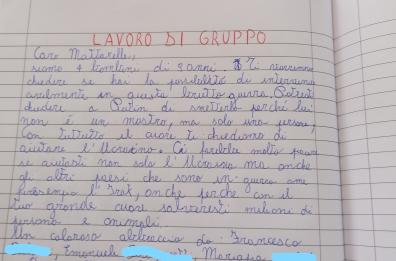 LAVORO DI GRUPPO
Caro Mattarella,
siamo 4 bambini di 9 anni e ti vorremmo
chiedere se hai la possibilità di intervenire
civilmente in questa brutta guerra. Potresti
chiedere a Putin di smetterla perché lui
non è un mostro, ma solo una persona,
Con tutto il cuore ti chiediamo di
aiutare l'Ucraina. Ci farebbe molto piacere
se aiutasti non solo l'Ucraina ma anche
gli altri paesi che sono in guerra come
l'Iraq, anche perché con il
tuo grande cuore salveresti milioni di
persone e animali.
Un caloroso abbraccio da: Francesco
Emanuele Mariapia